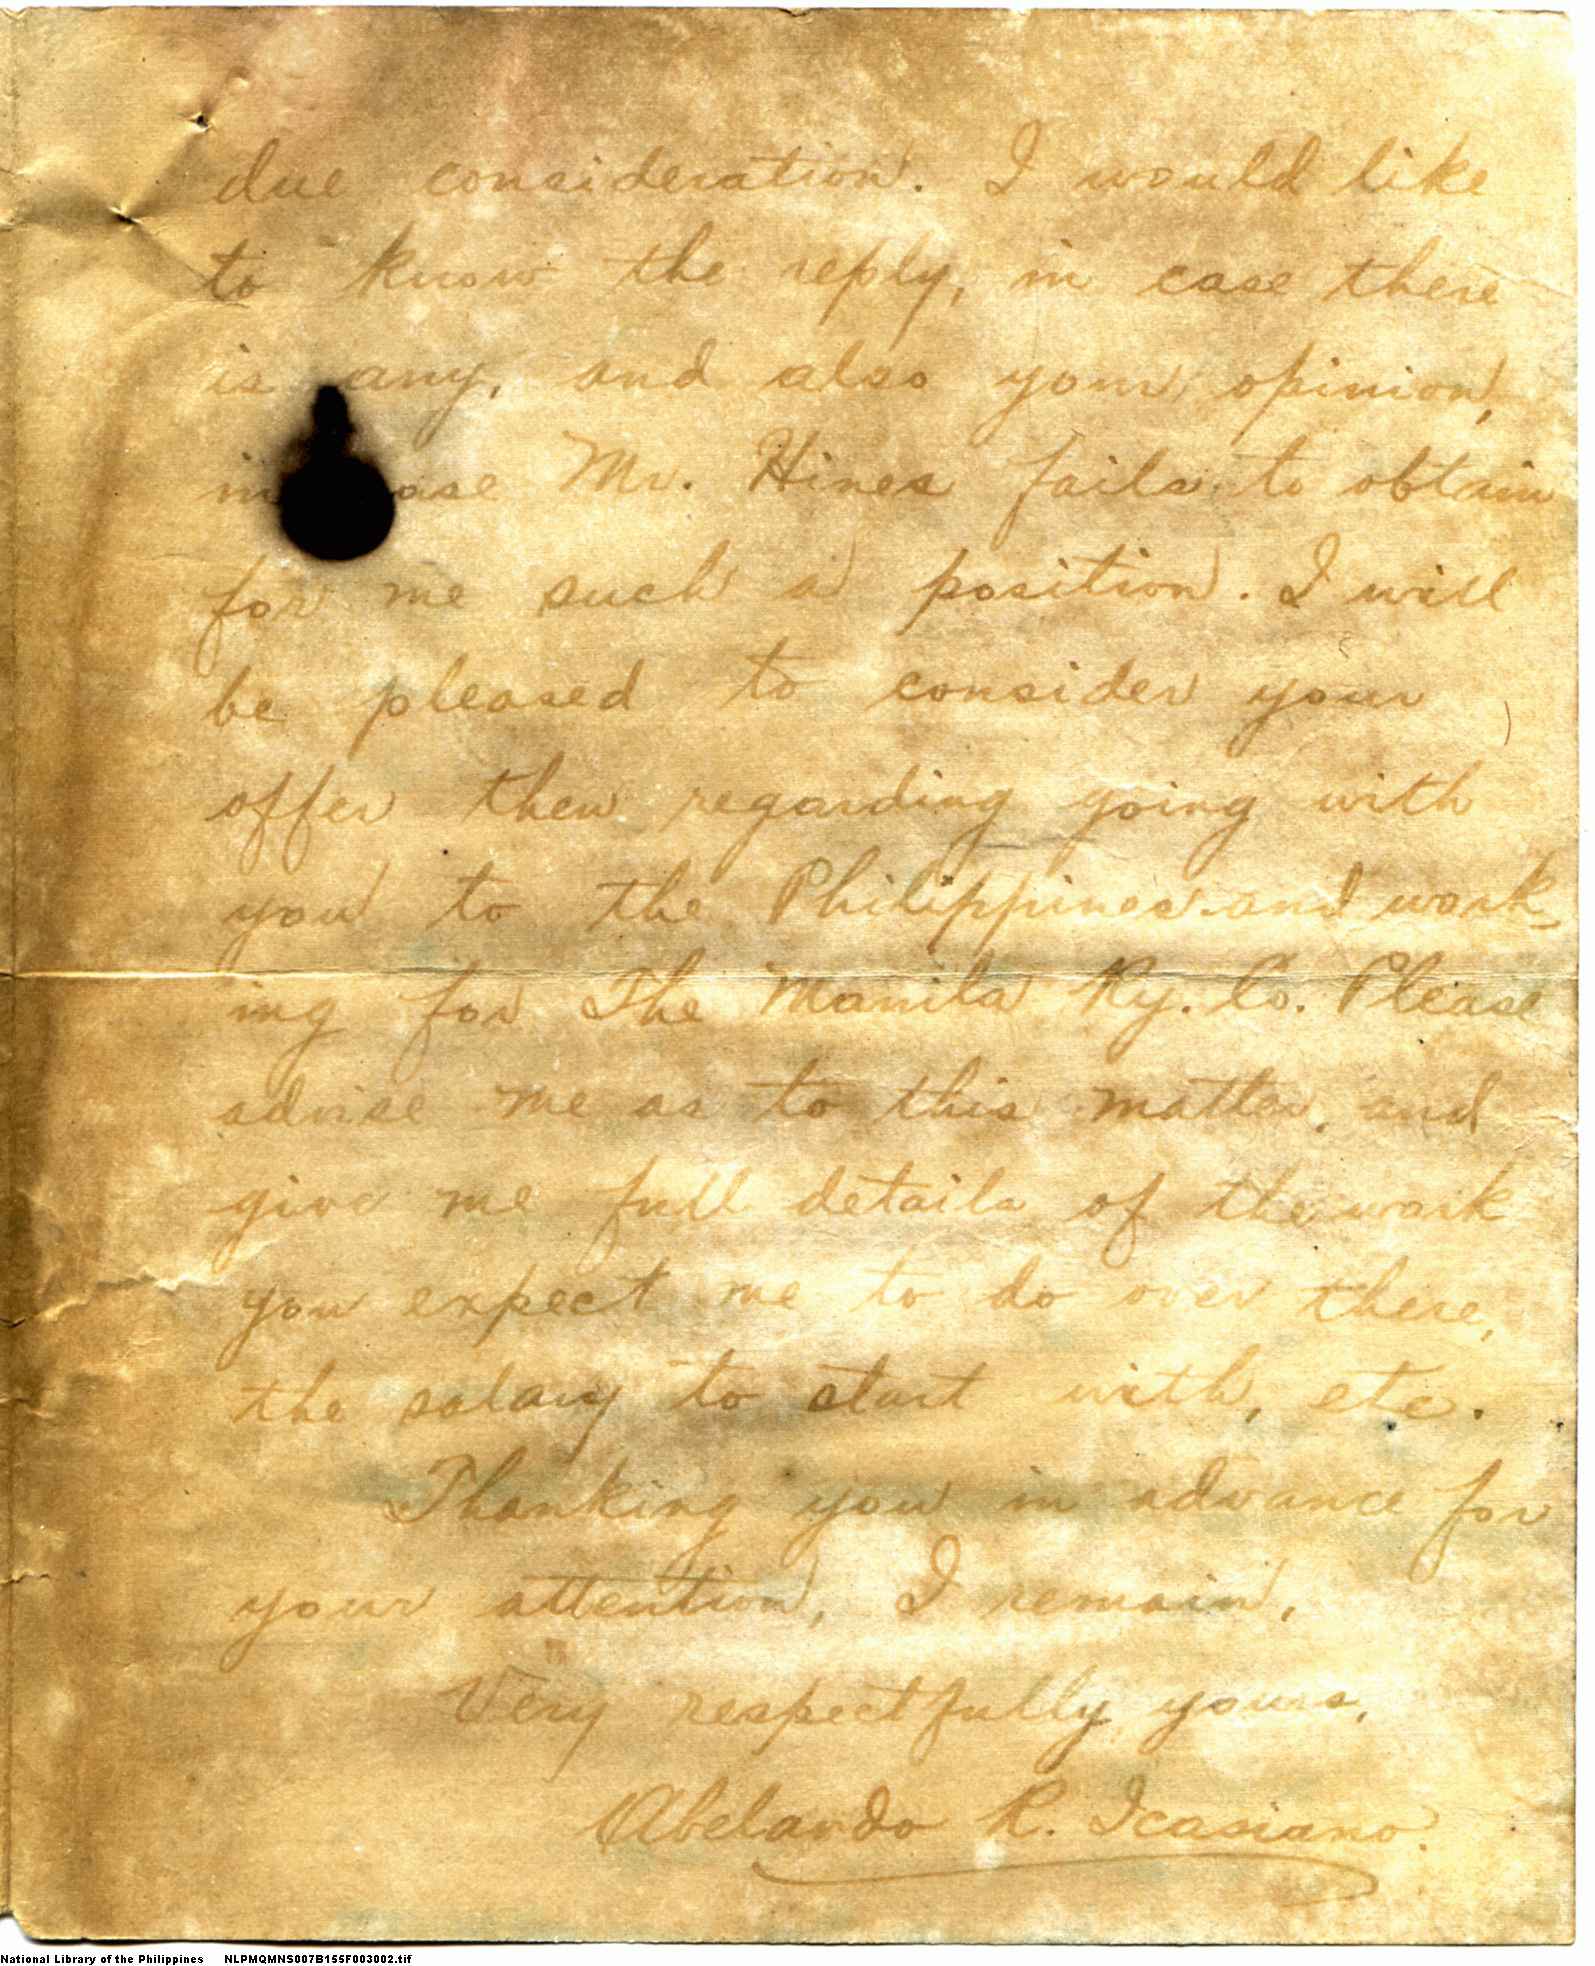 due consideration. I would like
to know the reply, in case there
is any, and also your opinion,
in case Mr. Hines fails to obtain
for me such a position. I will
be pleased to consider your
offer then regarding going with
you to the Philippines and work-
ing for The Manila Ry. Co. Please
advise me as to this matter, and
give me full details of the work
you expect me to do over there,
the salary to start with, etc.
Thanking you in advance for
your attention, I remain,
Very respectfully yours,
Abelardo R. Icasiano.
National Library of the Philippines NLPMQMNS007B155F003002.tif